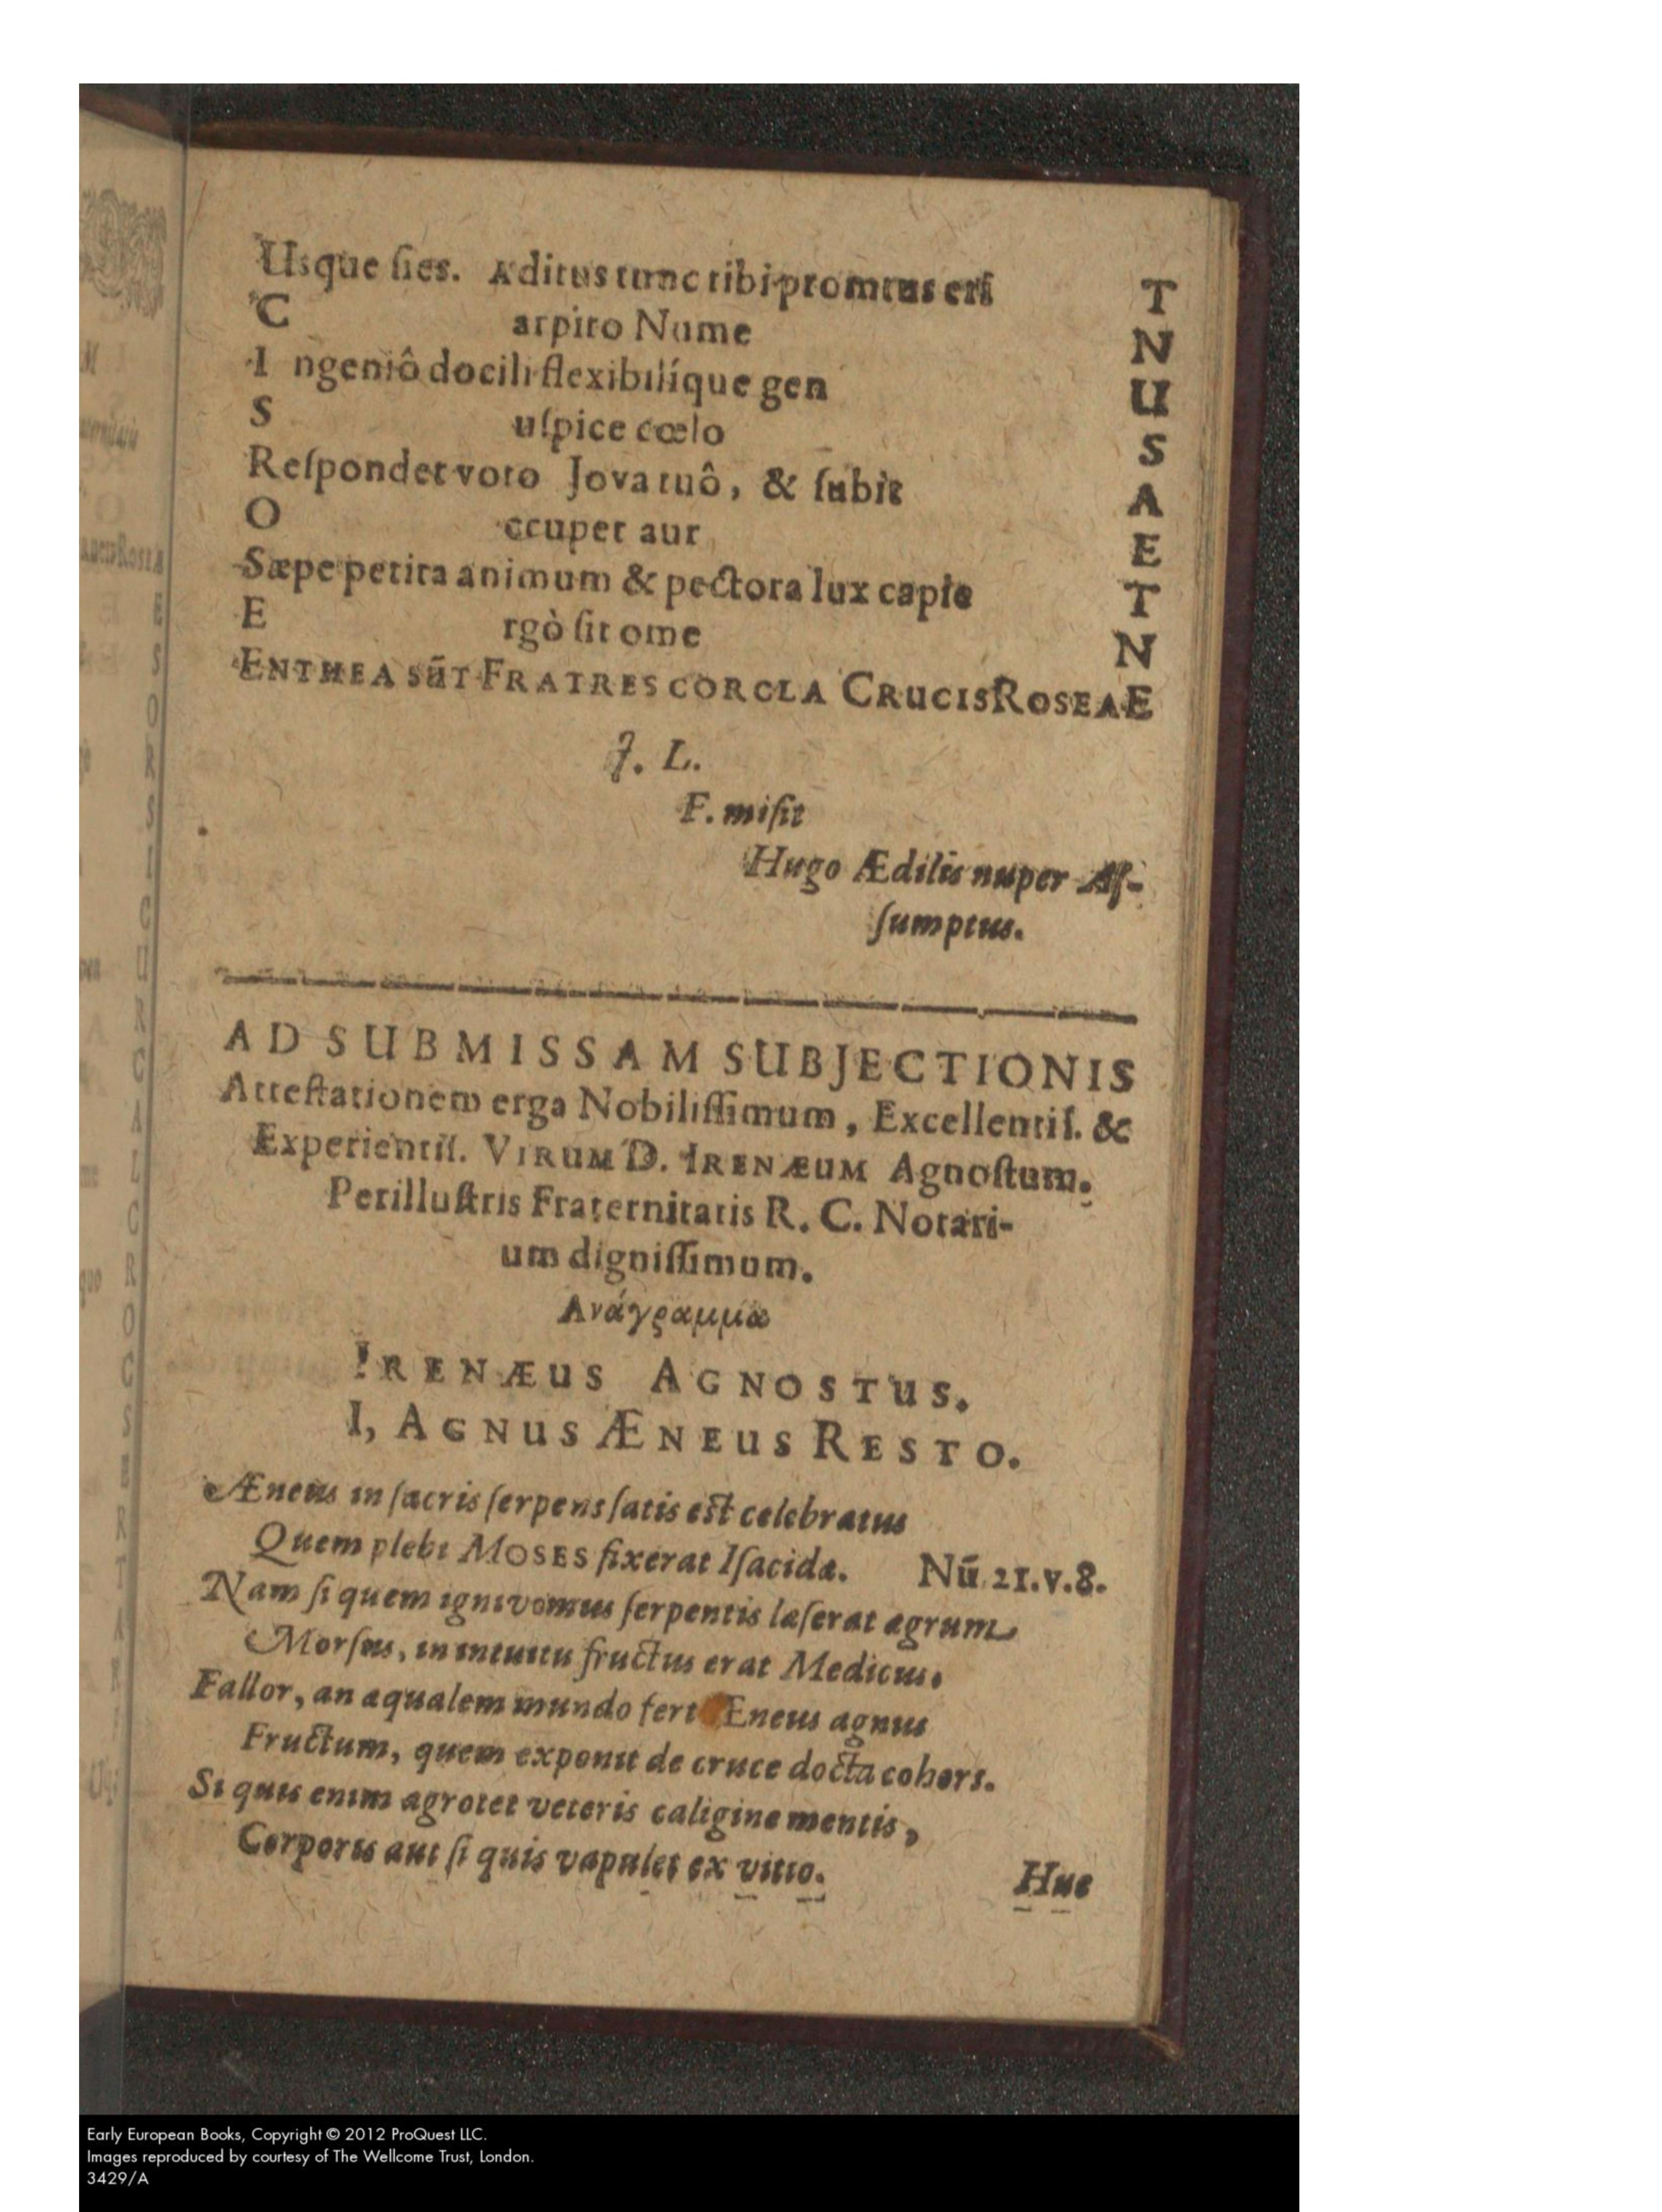 Usque ſies. Aditus tunc tibi promtus eri T
C arpito Nume N
I ngeniô docili flexibilíque gen U
S uſpice cœlo S
Reſpondet voto Jova tuô, & ſubit A
O ccupet aur E
Sæpe petita animum & pectora lux capie T
E rgò ſit ome N
ENTHEA SŨT FRATRES CORCLA CRUCIS ROSEAE
J. L.
F. miſit
Hugo Ædilis nuper Aſ-
ſumptus.
AD SUBMISSAM SUBJECTIONIS
Atteſtationem erga Nobiliſſimum, Excellentiſ. &
Experientiſ. VIRUM D. IRENÆUM Agnoſtum.
Perilluſtris Fraternitatis R. C. Notari-
um digniſſimum.
Ανάγραμμα
IRENÆUS AGNOSTUS.
I, AGNUS ÆNEUS RESTO.
Æneus in ſacris ſerpens ſatis est celebratus
Quem plebi MOSES fixerat Iſacidæ. Nũ. 21. v. 8.
Nam ſi quem ignivomus ſerpentis læſerat ægrum
Morſus, in intuitu fructus erat Medicus.
Fallor, an æqualem mundo fert Æneus agnus
Fructum, quem exponit de cruce docta cohors.
Si quis enim ægrotet veteris caligine mentis,
Corporis aut ſi quis vapulet ex vitio.
Huc
Early European Books, Copyright © 2012 ProQuest LLC.
Images reproduced by courtesy of The Wellcome Trust, London.
3429/A